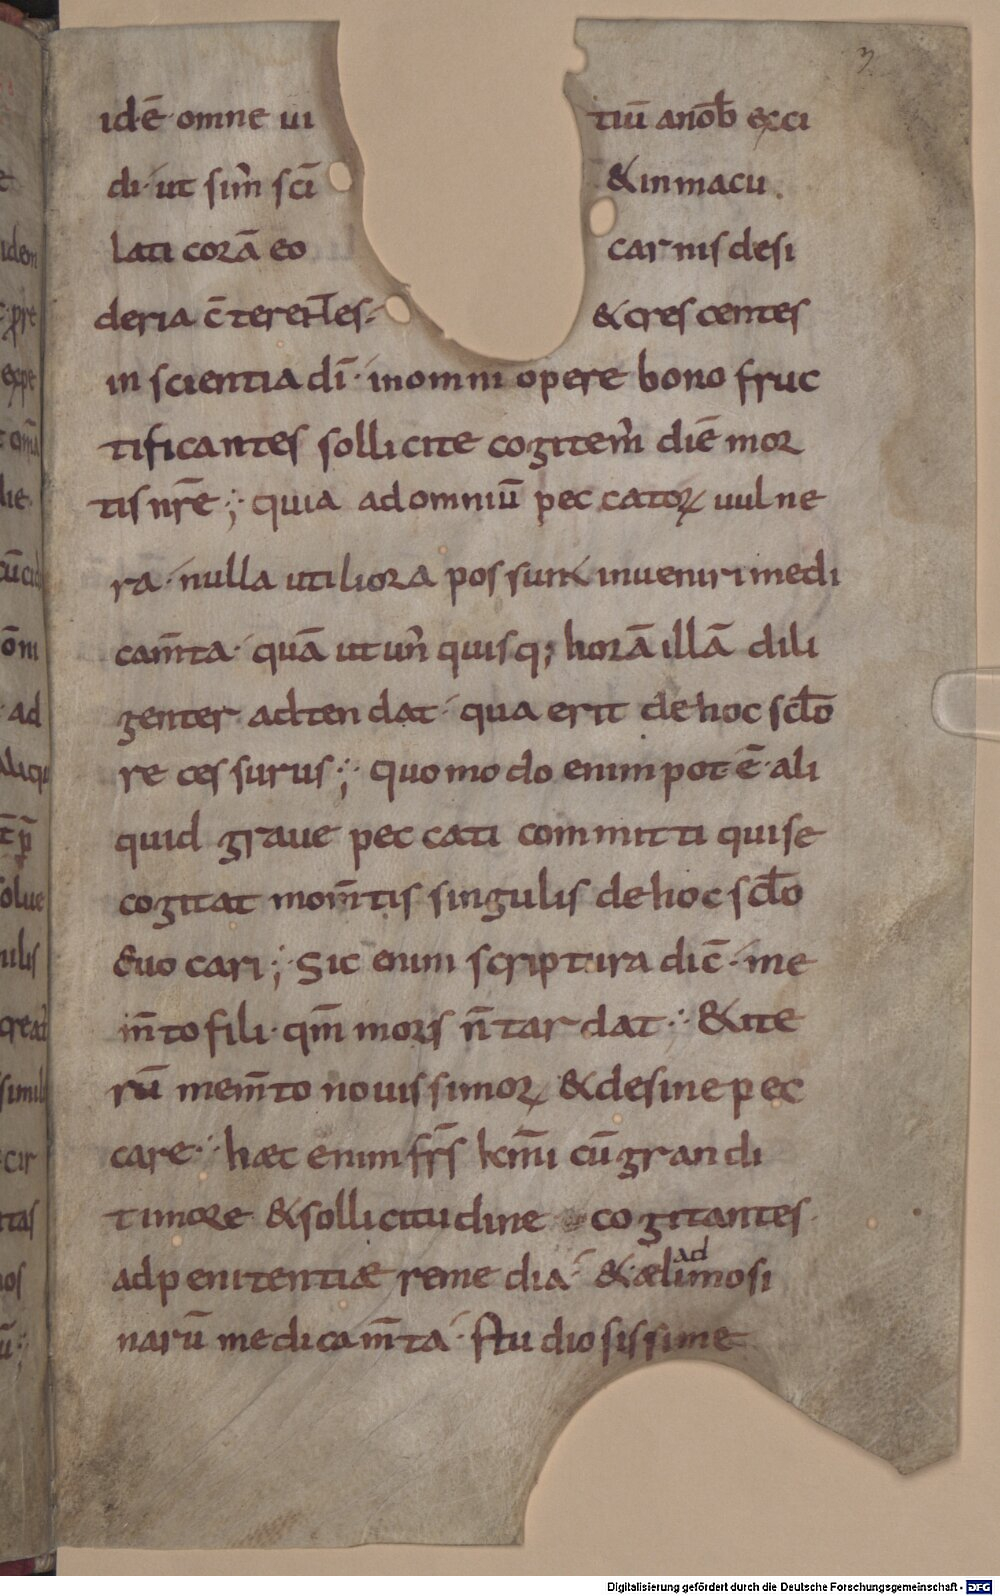 3
id·ē· omne ui tiū a nōb exci
di· ut sim̄ sc̄i & inmacu
lati corā eo carnis desi
deria c̄terentes· & crescentes
in scientia dī· in omni opere bono fruc
tificantes sollicite cogitem̄ diē mor
tis nr̄e; quia ad omniū peccatoꝝ uulne
ra· nulla utiliora possunt inueniri medi
cam̄ta· quā ut un̄ quisq; horā illā dili
genter adtendat· qua erit de hoc sc̄lo
recessurus; quomodo enim pot·ē· ali
quid graue peccati committi qui se
cogitat mom̄tis singulis de hoc sc̄lo
euocari; Sic enim scriptura dic̄· me
m̄to fili· qm̄ mors n̄ tardat· & ite
rū mem̄to nouissimoꝝ & desine pec
care· hæc enim fr̄s km̄i cū grandi
timore & sollicitudine cogitantes
ad penitentiæ remedia· & ad ælimosi
narū medicam̄ta· studiosissime
Digitalisierung gefördert durch die Deutsche Forschungsgemeinschaft - DFG